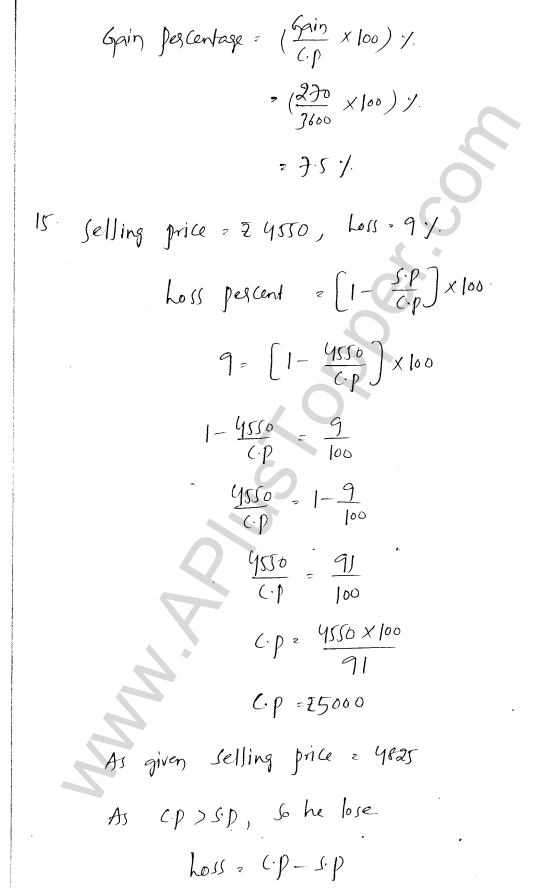 Gain percentage = (Gain/C.P × 100) %.
= (270/3600 × 100) %.
= 7.5 %.
15. Selling price = ₹ 4550, Loss = 9 %.
Loss percent = [1 - S.P/C.P] × 100.
9 = [1 - 4550/C.P] × 100
1 - 4550/C.P = 9/100
4550/C.P = 1 - 9/100
4550/C.P = 91/100
C.P = 4550 × 100/91
C.P = ₹5000
As given selling price = 4825
As C.P > S.P, So he lose
Loss = C.P - S.P
www.APlusTopper.com